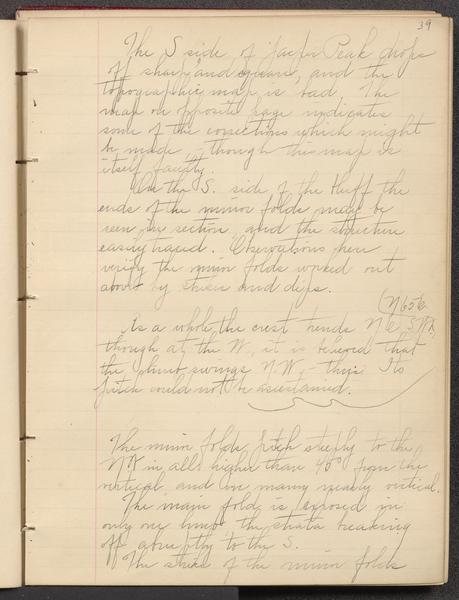 39
The S side of Jasper Peak drops
off sharp and square, and the
topographic map is bad. The
map on opposite page indicates
some of the corrections which might
be made - though this map is
itself faulty.
On the S. side of the bluff the
ends of the minor folds may be
seen in section and the structure
easily traced. Observations here
verify the minor folds worked out
above by strikes and dips.
(N65E
As a whole the crest trends N E
though at the W. it is believed that
the plunge swings N.W. - this. Its
pitch could not be ascertained.
The minor folds pitch steeply to the
N.E. in all higher than 45° from the
vertical and in many nearly vertical.
The major fold is exposed in
only one limb the strata breaking
off abruptly to the S.
The strike of the minor folds